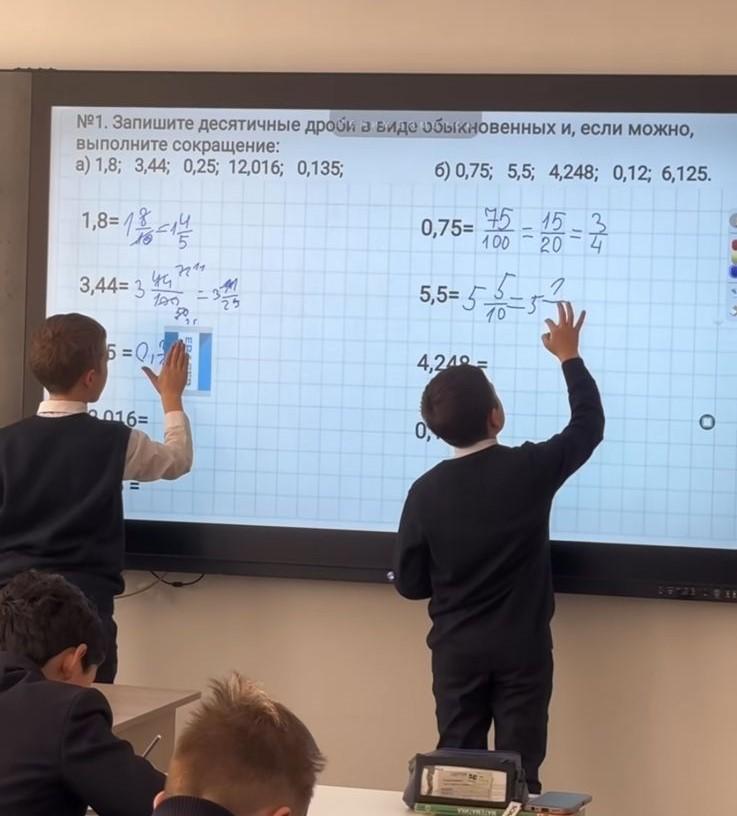 №1. Запишите десятичные дроби в виде обыкновенных и, если можно,
выполните сокращение:
а) 1,8; 3,44; 0,25; 12,016; 0,135;
б) 0,75; 5,5; 4,248; 0,12; 6,125.
1,8= 1 8/10 = 1 4/5
3,44= 3 44/100 = 3 11/25
5 = 0,
016=
=
0,75= 75/100 = 15/20 = 3/4
5,5= 5 5/10 = 5
4,248 =
0,